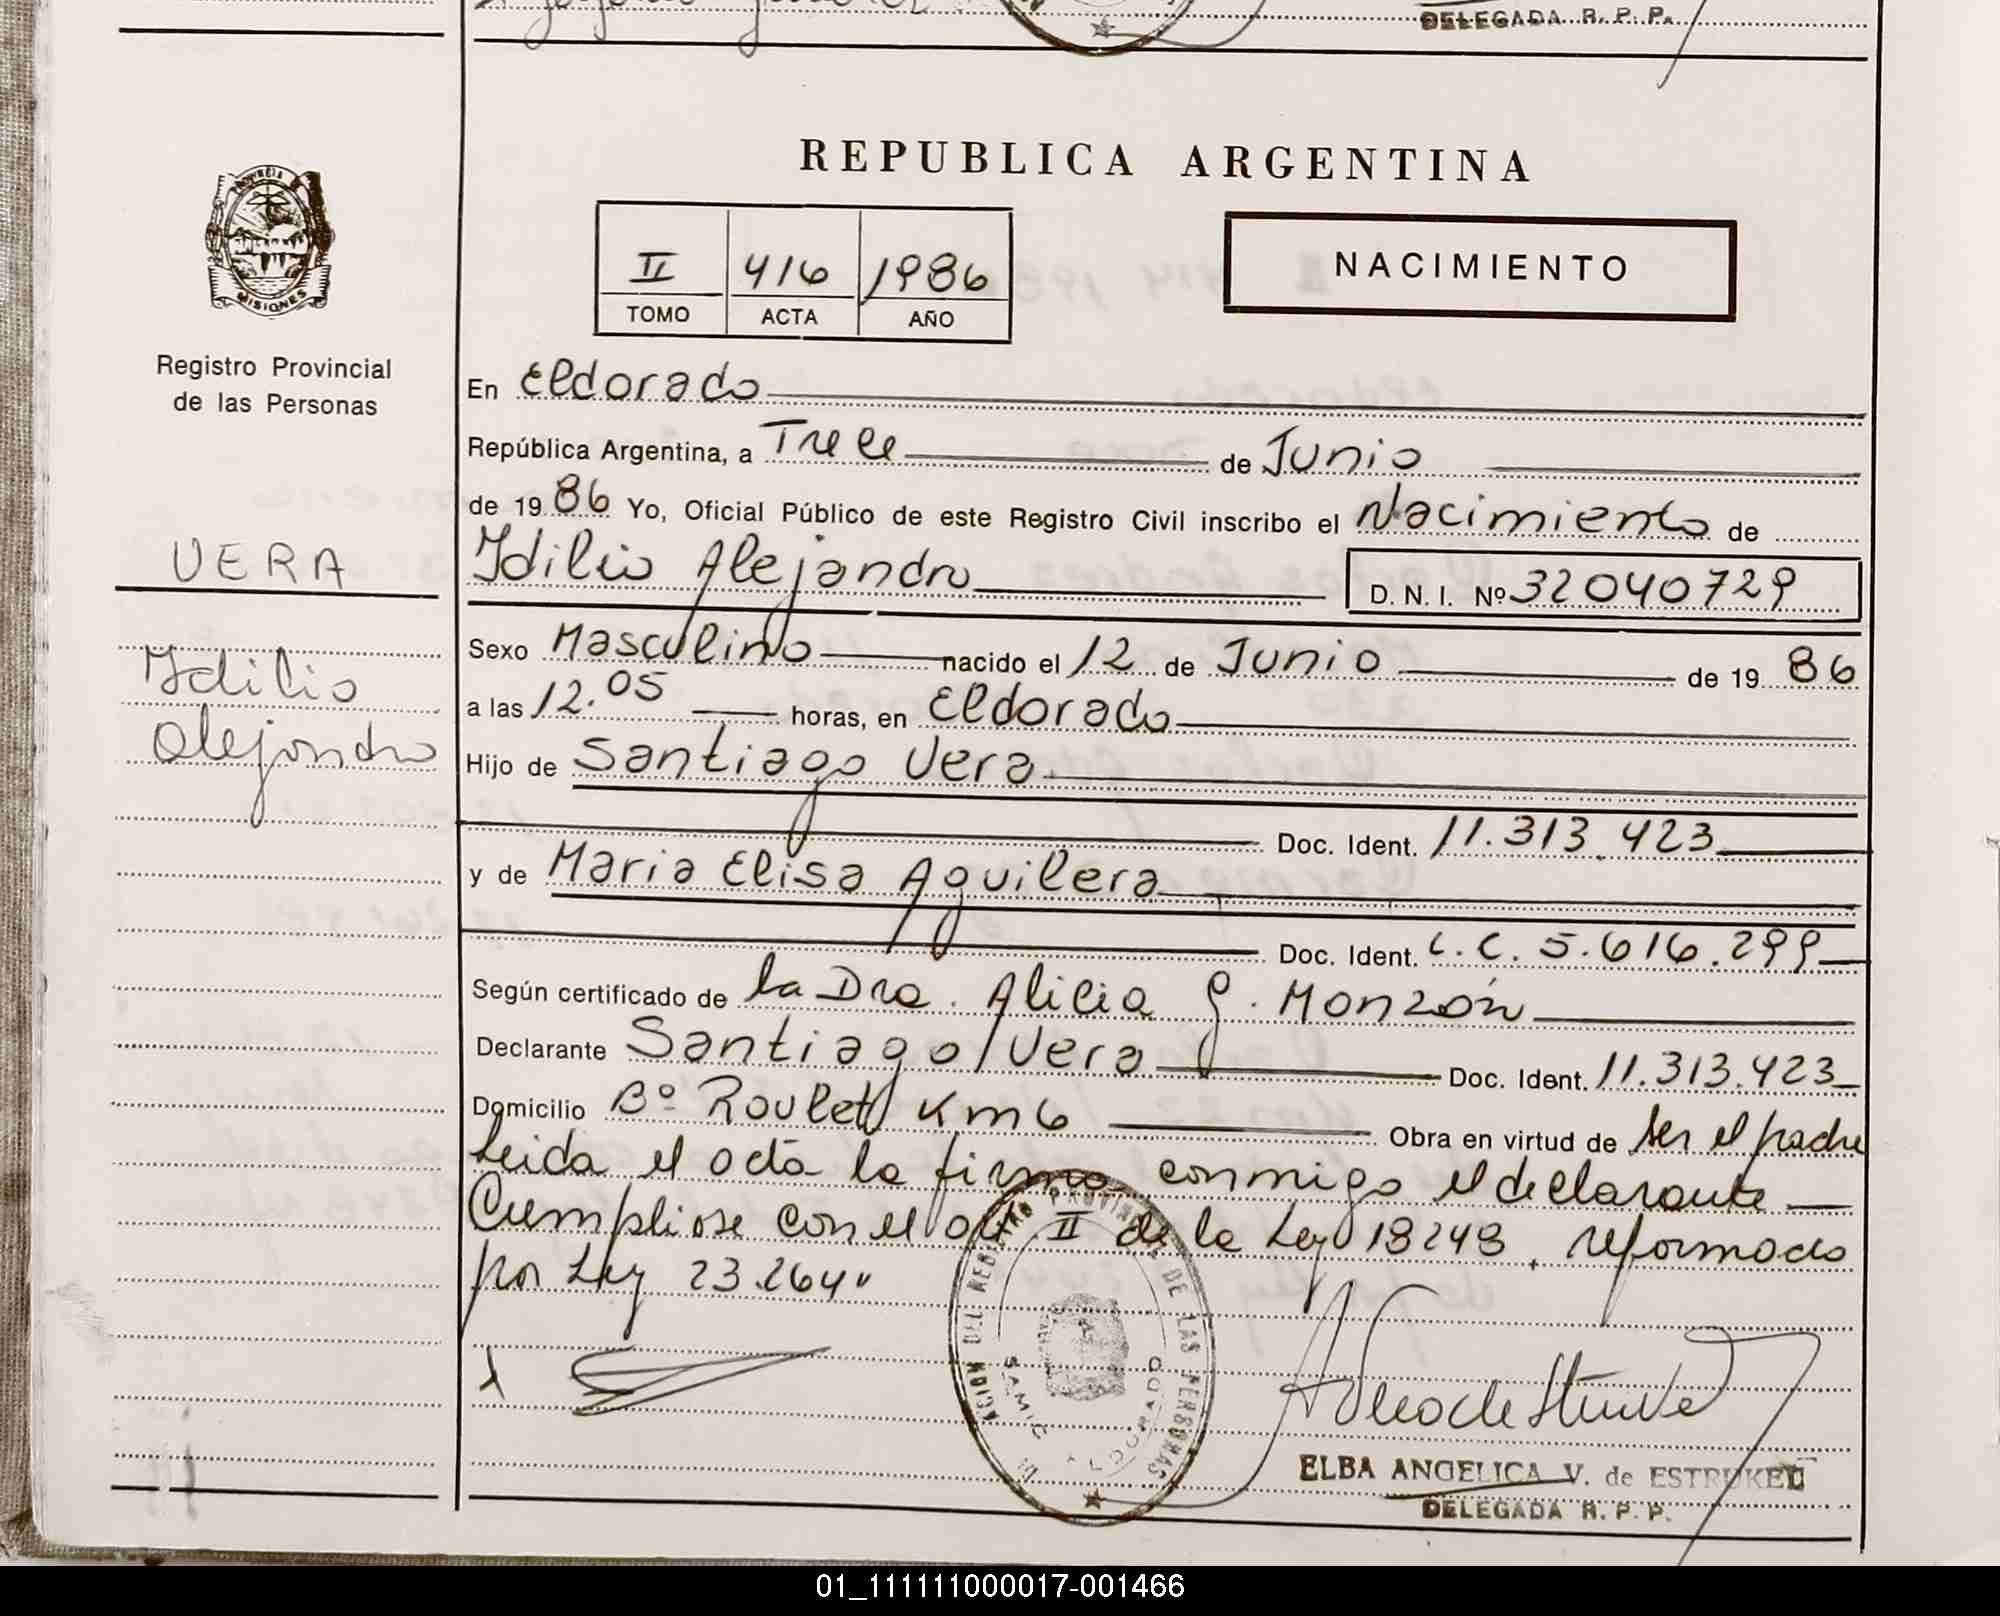 DELEGADA R. P. P.
REPUBLICA ARGENTINA
PROVINCIA DE
MISIONES
II 416 1986
TOMO ACTA AÑO
NACIMIENTO
Registro Provincial
de las Personas
VERA
Idilio
Alejandro
En Eldorado
República Argentina, a Trece de Junio
de 1986 Yo, Oficial Público de este Registro Civil inscribo el Nacimiento de
Idilio Alejandro D. N. I. Nº 32040729
Sexo Masculino nacido el 12 de Junio de 1986
a las 12.05 horas, en Eldorado
Hijo de Santiago Vera
Doc. Ident. 11.313.423
y de Maria Elisa Aguilera
Doc. Ident. L.C. 5.616.299
Según certificado de la Dra. Alicia G. Monzón
Declarante Santiago Vera Doc. Ident. 11.313.423
Domicilio Bº Roulet Km 6 Obra en virtud de ser el padre
Leida el acta la firma conmigo el declarante
Cumpliose con el art II de la Ley 18248, reformado
por Ley 23.264"
DEL REGISTRO PROVINCIAL DE LAS PERSONAS
SAMIC ELDORADO
ELBA ANGELICA V. de ESTRUKEL
DELEGADA R. P. P.
01_111111000017-001466